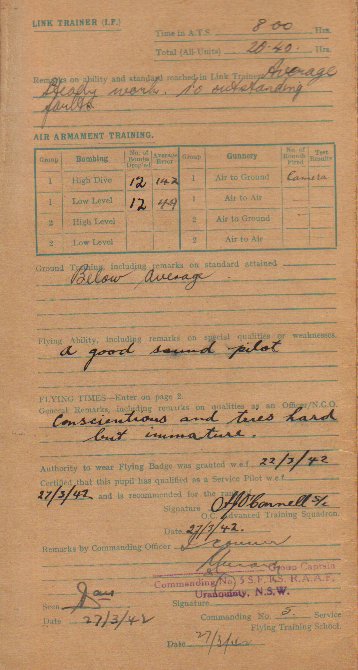 LINK TRAINER (I.F.)
Time in A.T.S. 8·00 Hrs.
Total (All-Units) 20·40 Hrs.
Remarks on ability and standard reached in Link Trainer Average
Steady work. No outstanding
faults.
AIR ARMAMENT TRAINING.
Group Bombing No. of Bombs Dropped Average Error Group Gunnery No. of Rounds Fired Test Results
1 High Dive 12 142 1 Air to Ground Camera
1 Low Level 12 49 1 Air to Air
2 High Level 2 Air to Ground
2 Low Level 2 Air to Air
Ground Training, including remarks on standard attained
Below Average
Flying Ability, including remarks on special qualities or weaknesses.
A good sound pilot
FLYING TIMES—Enter on page 2.
General Remarks, including remarks on qualities as an Officer/N.C.O.
Conscientious and tries hard
but immature.
Authority to wear Flying Badge was granted w.e.f. 22/3/42
Certified that this pupil has qualified as a Service Pilot w.e.f.
27/3/42 and is recommended for the rank
Signature O'Connell S/L
O.C. Advanced Training Squadron.
Date 27/3/42.
Remarks by Commanding Officer I concur
Group Captain
Commanding No. 5 S.F.T.S. R.A.A.F.
Uranquinty, N.S.W.
Seen
Signature
Date 27/3/42
Commanding No. 5 Service
Flying Training School.
Date 27/3/42